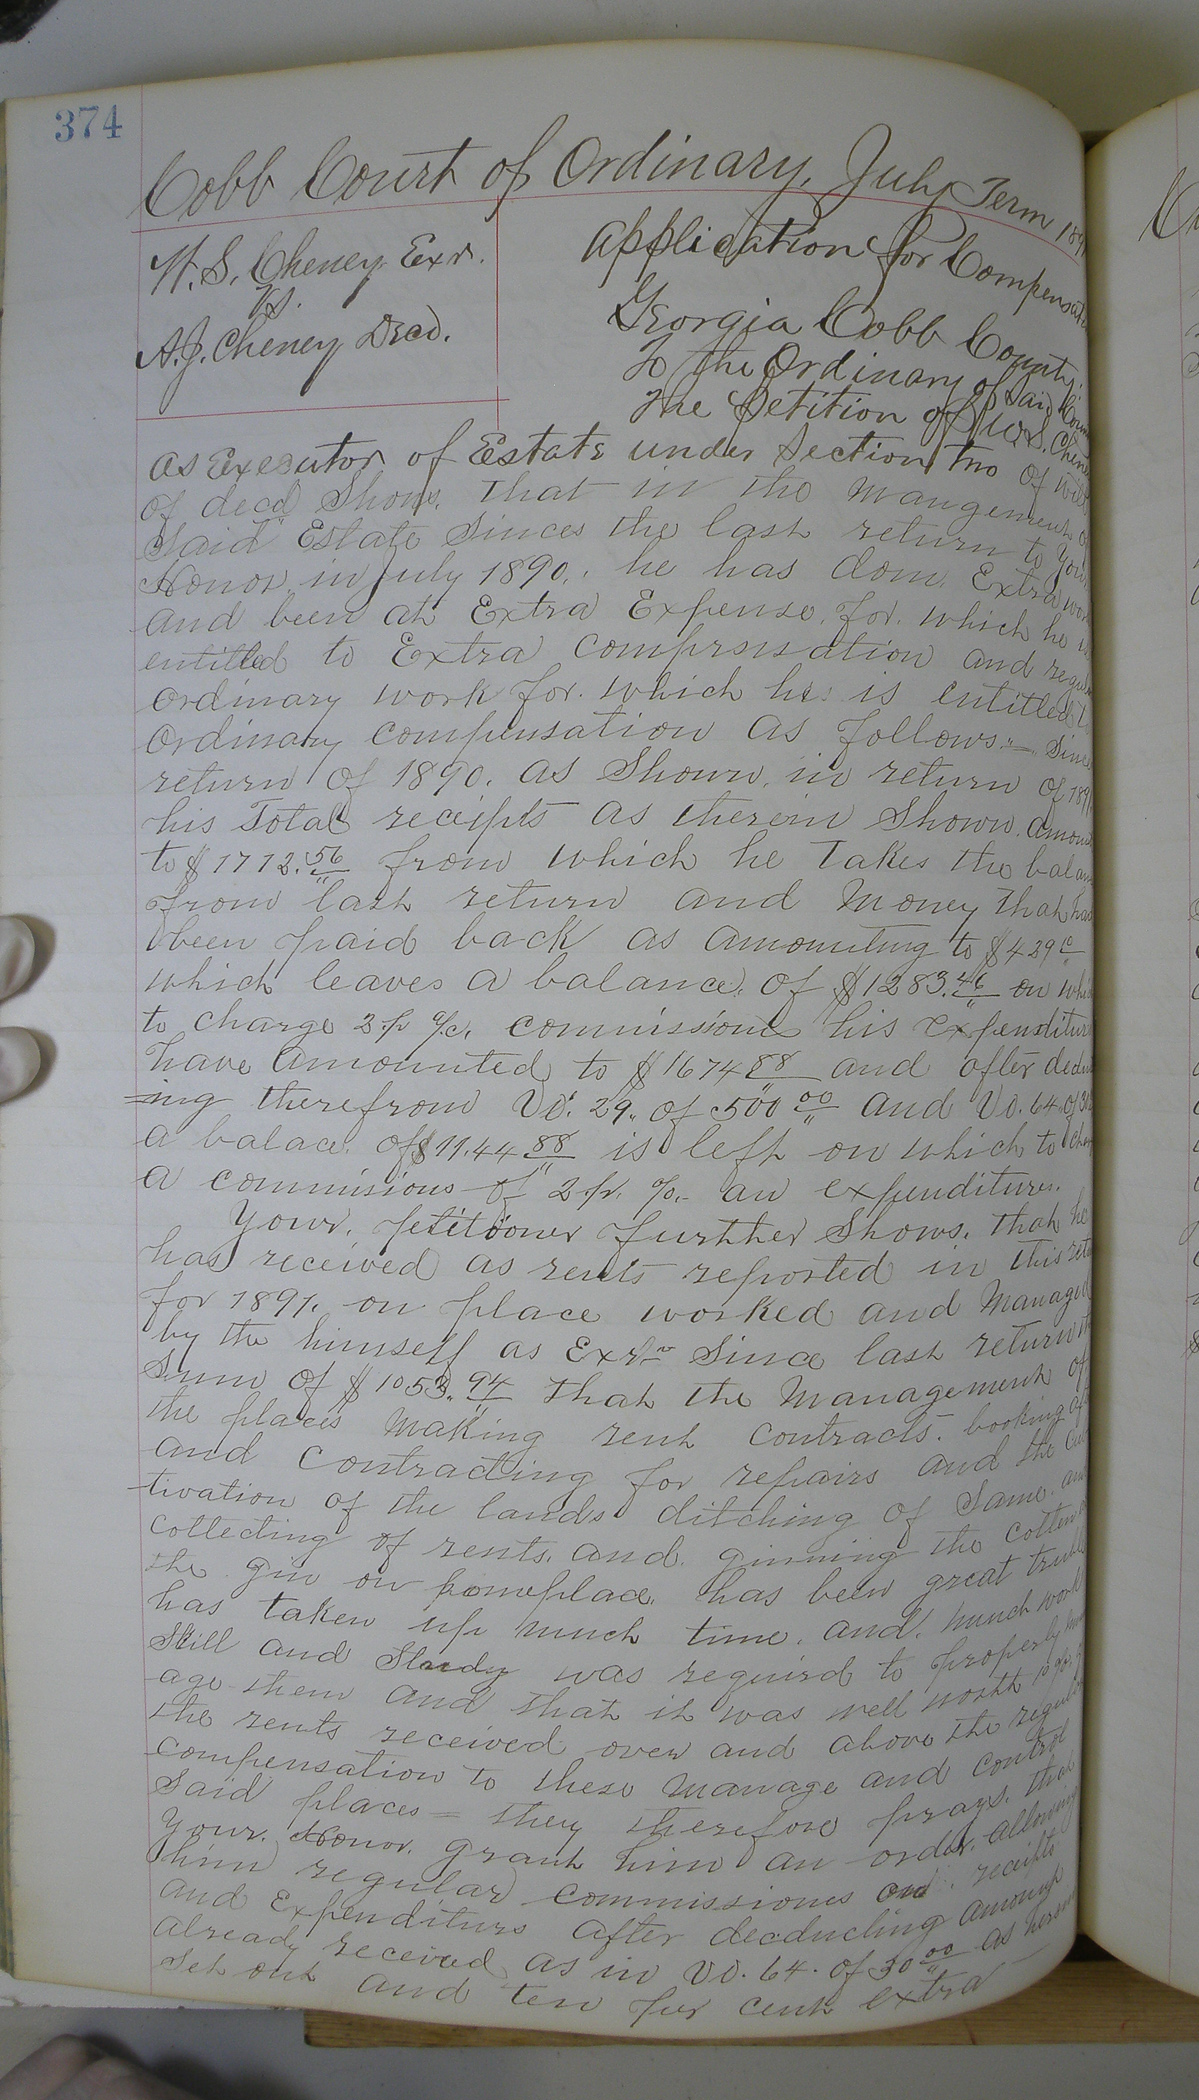 374
Cobb Court of Ordinary, July Term 189
W. S. Cheney Exr.
vs.
A. J. Cheney Decd.
Application for Compensat
Georgia Cobb County.
To the Ordinary of Said Coun
The Petition of W. S. Chene
as Executor of Estate under Section two of will
of decd Shows. that in the mangement of
Said Estate Sinces the last return to Your
Honor in July 1890. he has don. Extra wor
and been at Extra Expense for. which he is
entitled to Extra compensation and regul
Ordinary work for. which he is entitled to
Ordinary compensation as follows:= Since
return of 1890. as Shown in return of 1891
his Total receipts as therein Shown. amou
to $1712.56 from which he takes the balan
from last return and Money that has
been paid back as amounting to $429
which leaves a balance. of $1283.46 on whi
to charge 2 p %. commissions his expenditur
have amounted to $1674 88 and after deduct
=ing therefrom Vo. 29. of 500 00 and Vo. 64. of 30
a balace. of $11.44 88 is left on which to char
a commisions of 2 pr. %. an expenditures.
Your. petitioner further Shows. that he
has received as rents reported in this ret
for 1891. on place worked and Managed
by the himself as Exr Since last return the
Sum of $1053.94 that the Management of
the places Making rent contracts. booking aft
and Contracting for repairs and the Cul
tivation of the lands ditching of Same. and
collecting of rents. and. ginning the cotten
the gin on homeplace. has been great trubl
has taken up much time. and. much work
Skill and Study was requird to properly man
age them and that it was well worth 10 pr.
the rents received over and above the regular
compensation to these Manage and control
Said places = they therefore prays. that
Your. Honor. grant him an order. allowing
him regular commissiones and receipts
and Expenditurs after decducting amount
already received as in Vo. 64. of 30 00 as herein
Set out and ten pur cent extra